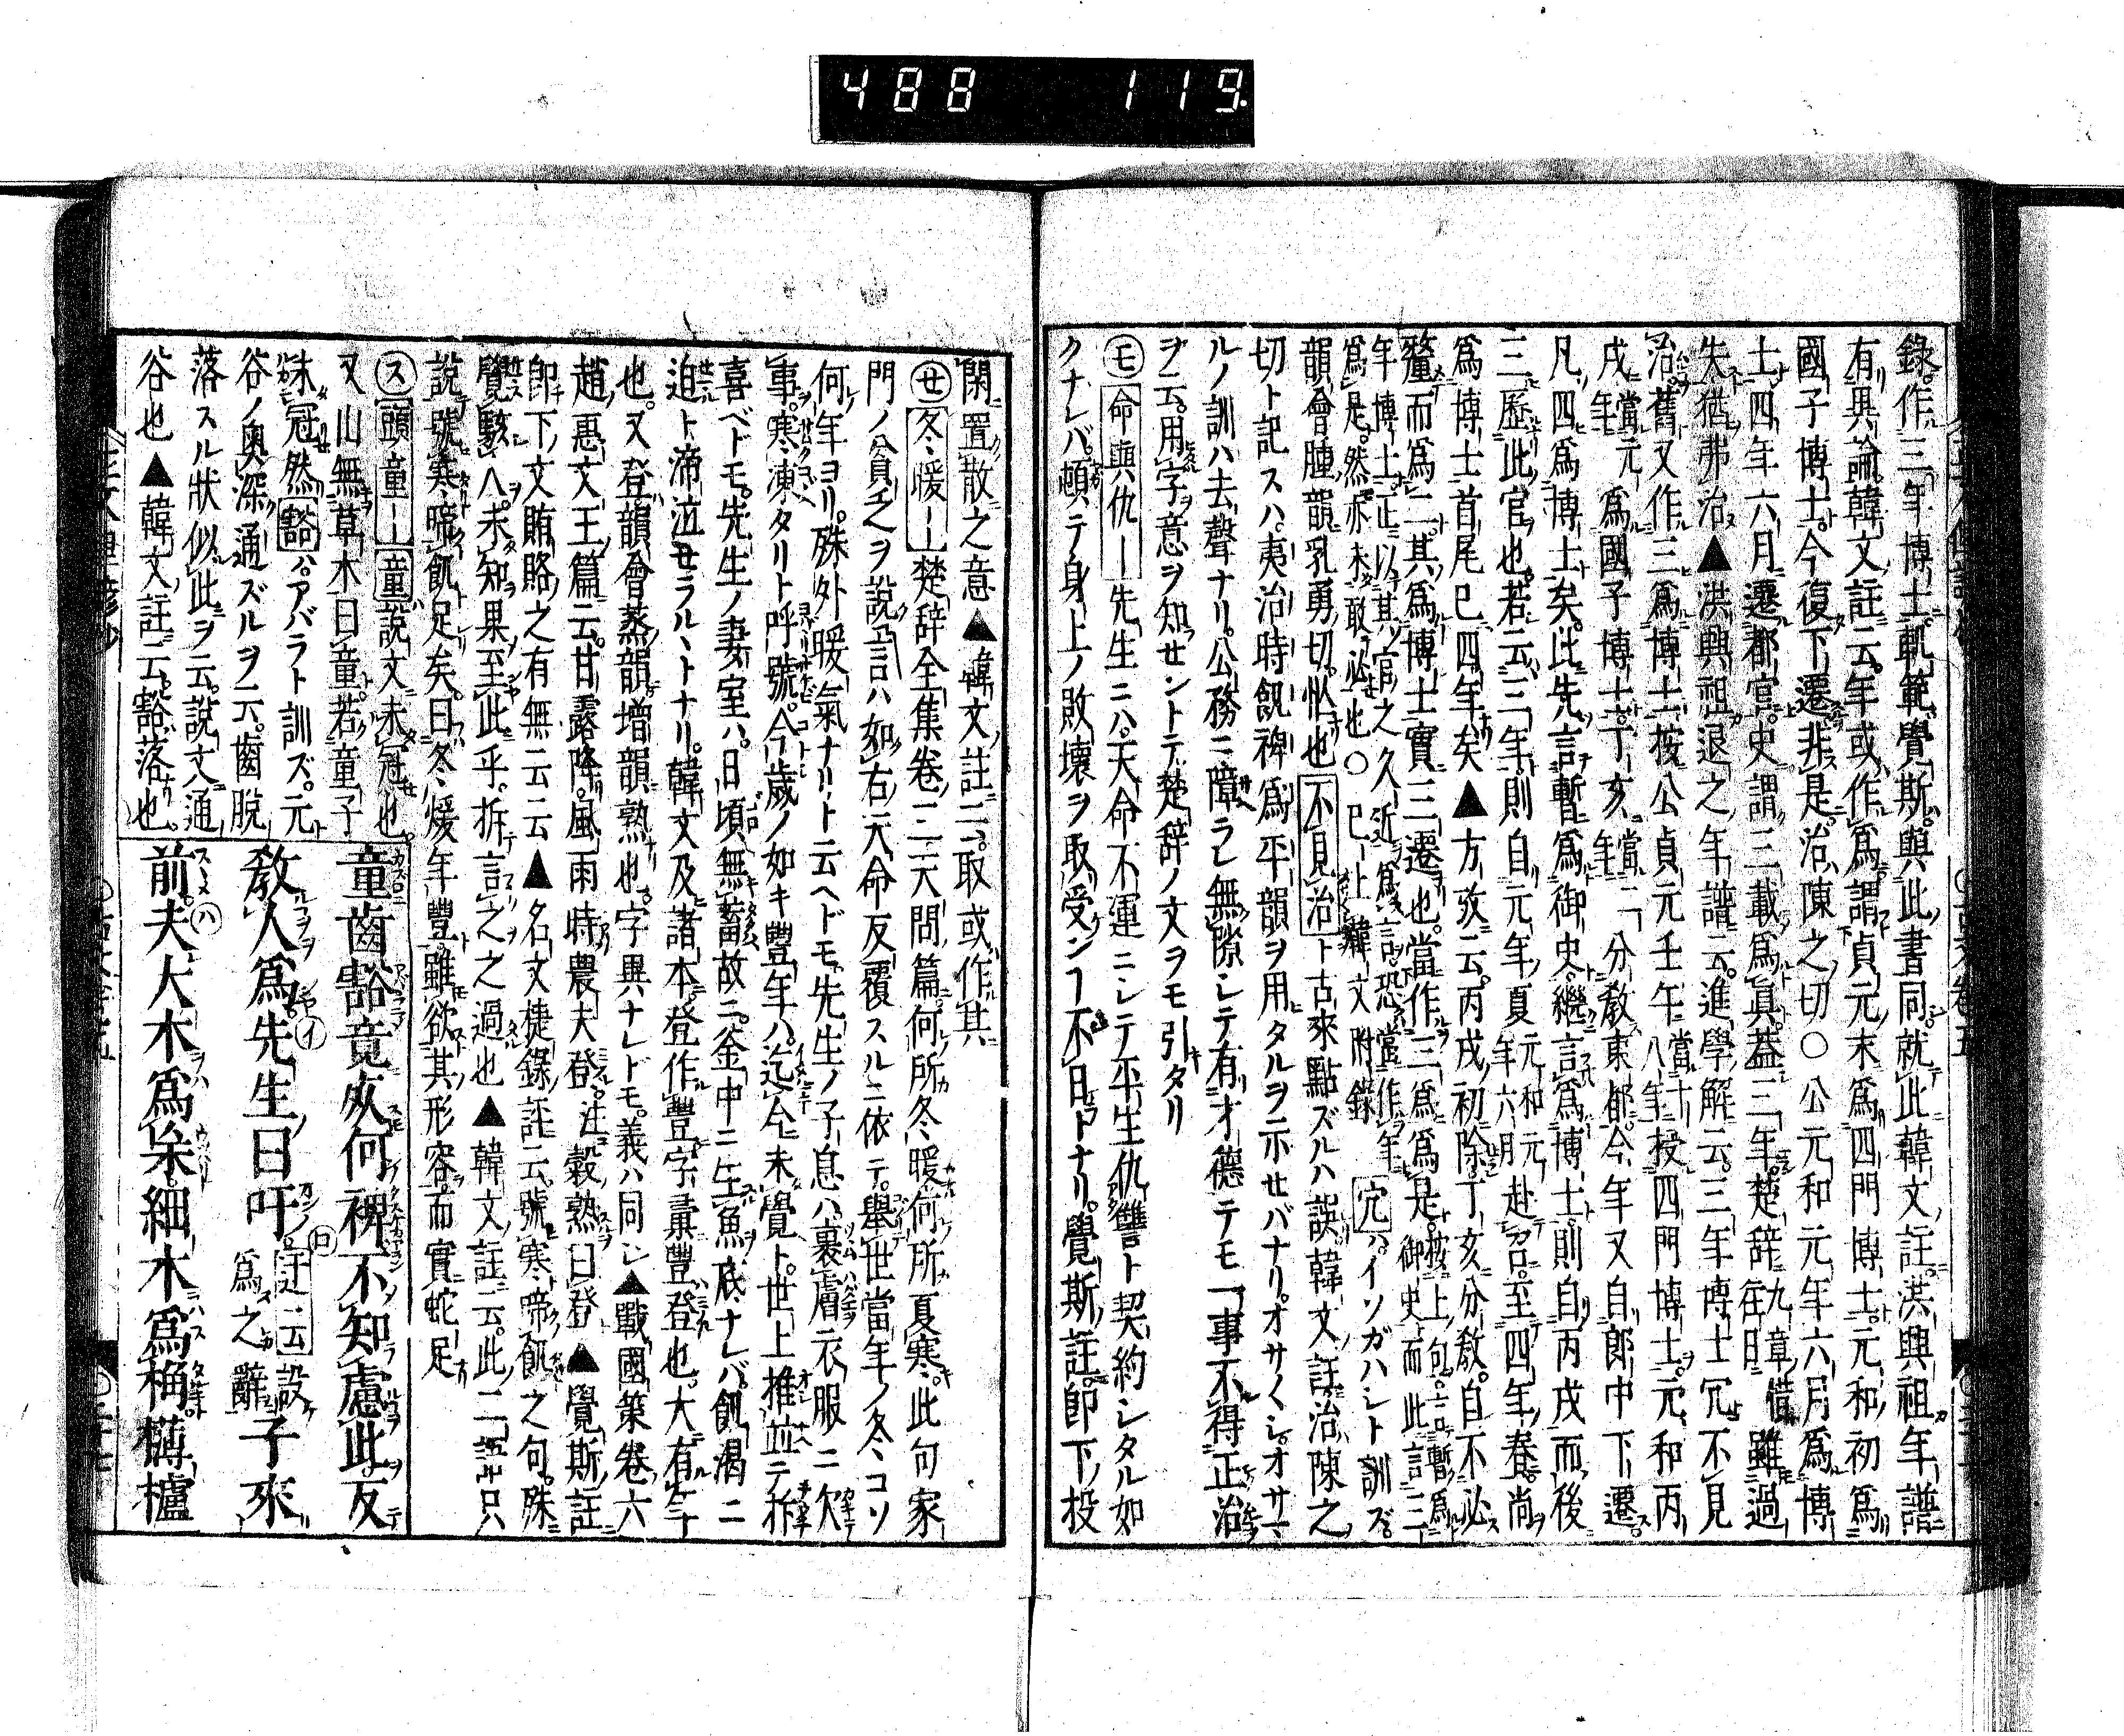 488 119
錄作三年博士軌範覺斯與此書同就此韓文註洪興祖年譜
有異論韓文註云年或作爲謂貞元末爲四門博士元和初爲
國子博士今復下遷非是治陳之切○公元和元年六月爲博
士四年六月遷都官史謂三載爲眞蓋三年楚辭九章惜往日雖過
失猶弗治▲洪興祖退之年譜云進學解云三年博士冗不見
治舊又作三爲博士按公貞元壬午當十八年授四門博士元和丙
戌當元年爲國子博士丁亥當二年分敎東都今年又自郎中下遷
凡四爲博士矣此先言暫爲御史繼言爲博士則自丙戌而後
三歷此官也若云三年則自元年夏元和元年六月赴召至四年春尚
爲博士首尾已四年矣▲方攷云丙戌初除丁亥分敎自不必
釐而爲二其爲博士實三遷也當作三爲爲是按上句言暫爲御史而此言三
年博士正以其官之久近爲言恐當作年爲是然亦未敢必也○已上韓文附錄冗ハイソガハシト訓ズ
韻會腫韻乳勇切忙也不見治ト古來點ズルハ誤韓文註治陳之
切ト記スハ夷治時飢裨爲平韻ヲ用タルヲ示セバナリオサ〱シオサマ
ルノ訓ハ去聲ナリ公務ニ障ラレ無隙シテ有才德テモ一事不得正治
ヲ云用字意ヲ知センドテ楚辭ノ文ヲモ引タリ
モ命與仇―先生ニハ天命不運ニシテ平生仇讐ト契約シタル如
クナレバ頓テ身上ノ敗壞ヲ取受ンヿ不日トナリ覺斯註即下投
閑置散之意▲韓文註云取或作其
セ冬煖―楚辭全集卷三天問篇何所冬暖何所夏寒此句家
門ノ貧乏ヲ說言ハ如右天命反覆スルニ依テ舉世當年ノ冬コソ
何年ヨリ殊外暖氣ナリト云ヘドモ先生ノ子息ハ裹膚衣服ニ欠
事寒凍タリト呼號今歲ノ如キ豐年ハ迄今未覺ト世上推並テ祚
喜ベドモ先生ノ妻室ハ日頃無蓄故ニ釜中ニ生魚底ナレバ飢渴ニ
迫ト渧泣セラルヽトナリ韓文及諸本登作豐字彙豐登也大有年
也又登韻會蒸韻增韻熟也字異ナレドモ義ハ同シ▲戰國策卷六
趙惠文王篇云甘露降風雨時農夫登注穀熟曰登▲覺斯註
卽下文賄賂之有無云云▲名文捷錄註云號寒啼飢之句殊
覺駭人未知果至此乎拆言之之過也▲韓文註云此二語只
說號寒啼飢足矣曰冬煖年豐雖欲其形容而實蛇足
ス頭童―童說文未冠也
又山無草木曰童若童子
未冠然豁ハアバラト訓ズ元
谷ノ奧深通ズルヲ云齒脫
落スル狀似此ヲ云說文通
谷也▲韓文註云豁落也
童齒豁竟死何裨不知慮此反
敎人爲先生曰吁子來
前夫大木爲杗細木爲桷欂櫨